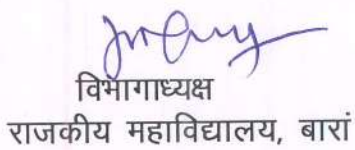 विभागाध्यक्ष
राजकीय महाविद्यालय, बारां